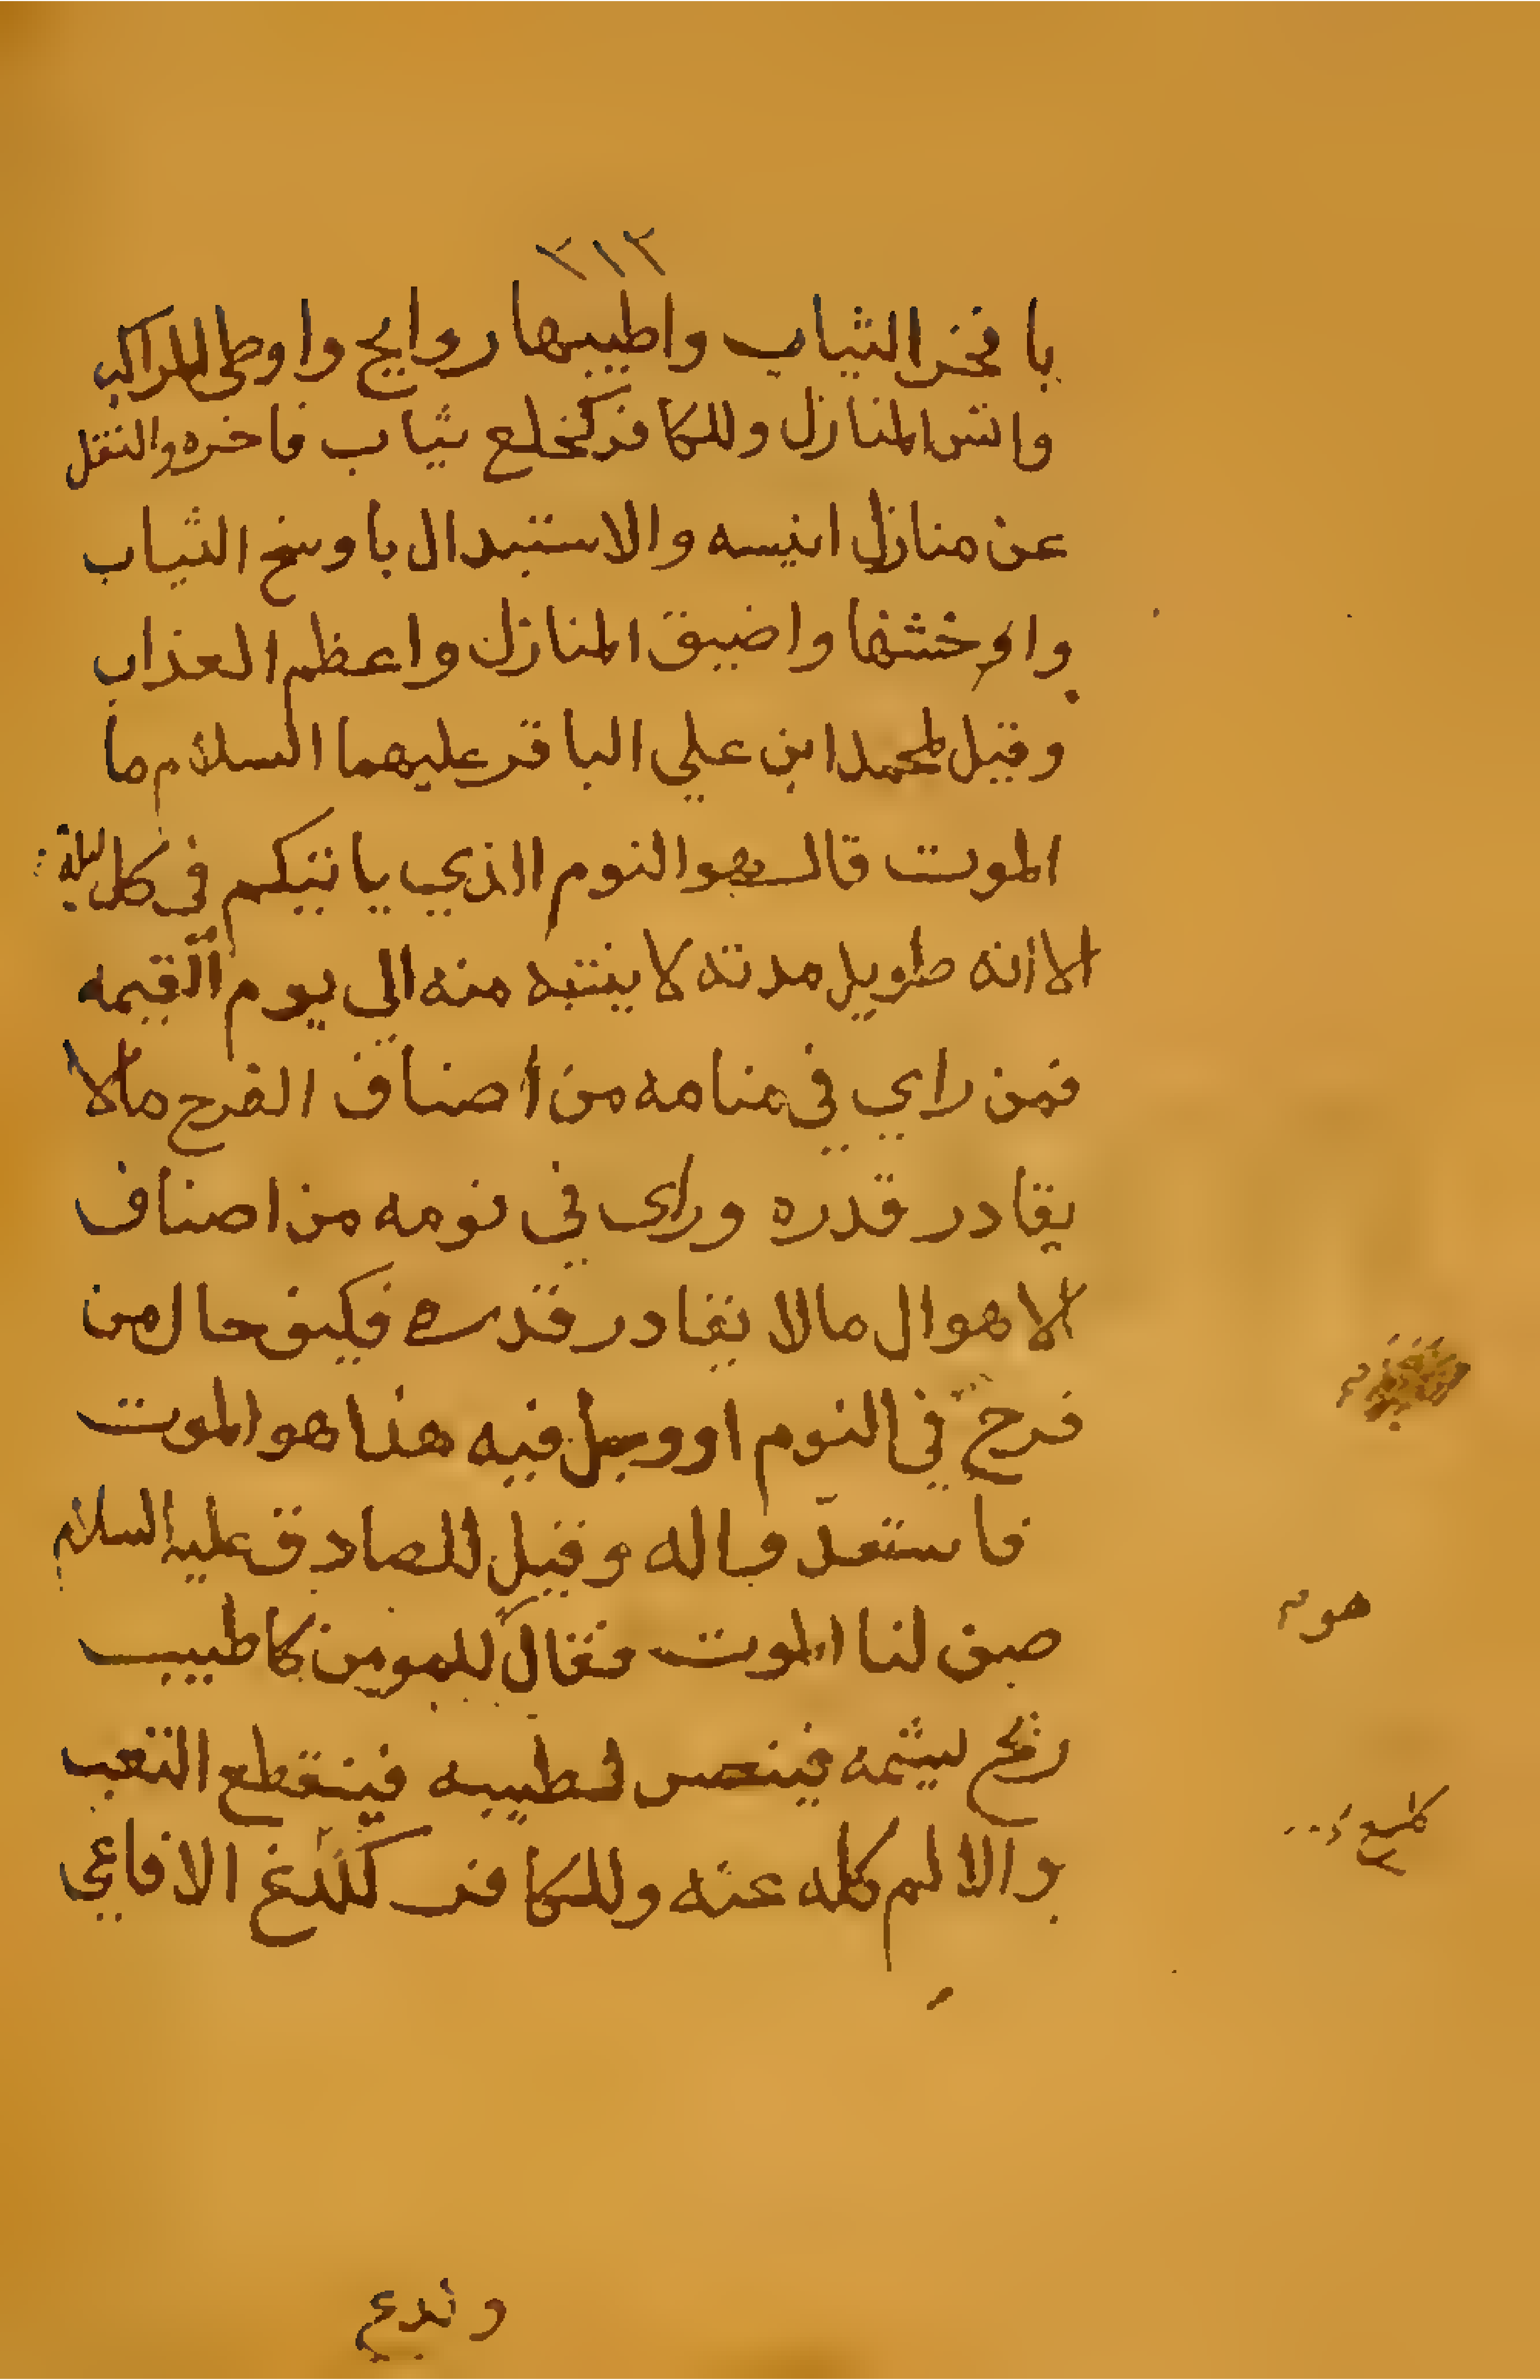 ٣١٢
بافخر الثياب واطيبها روايح واوطى المراكب
وانس المنازل وللكافر كخلع ثياب فاخره والنقل
عن منازل انيسه والاستبدال باوسخ الثياب
واوخشنها واضيق المنازل واعظم العذاب
وقيل لمحمد ابن علي الباقر عليهما السلام ما
الموت قال هو النوم الذي ياتيكم في كل ليلة
الا انه طويل مدته لا ينتبه منه الى يوم القيمه
فمن راي في منامه من اصناف الفرح مالا
يقادر قدره وراى في نومه من اصناف
الاهوال مالا يقادر قدره فكيف حال من
فرح في النوم او وجل فيه هذا هو الموت
فاستعدوا له وقيل للصادق عليه السلام
صف لنا الموت فقال للمومن كاطيب
ريح يشمه فينعس لطيبه فينقطع التعب
والالم كله عنه وللكافر كلدغ الافاعي
هو
ولدغ